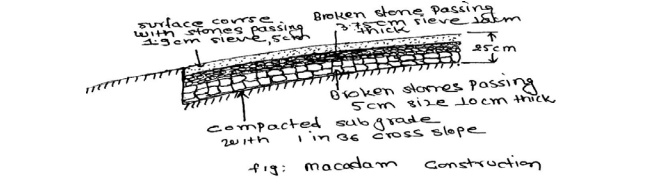 surface corse
with stones passing
1.9cm sieve, 5cm
Broken stone Passing
3.75cm sieve 10cm
thick
25cm
Broken stones Passing
5cm size 10cm thick
compacted subgrade
with 1 in 36 cross slope
fig: macadam construction